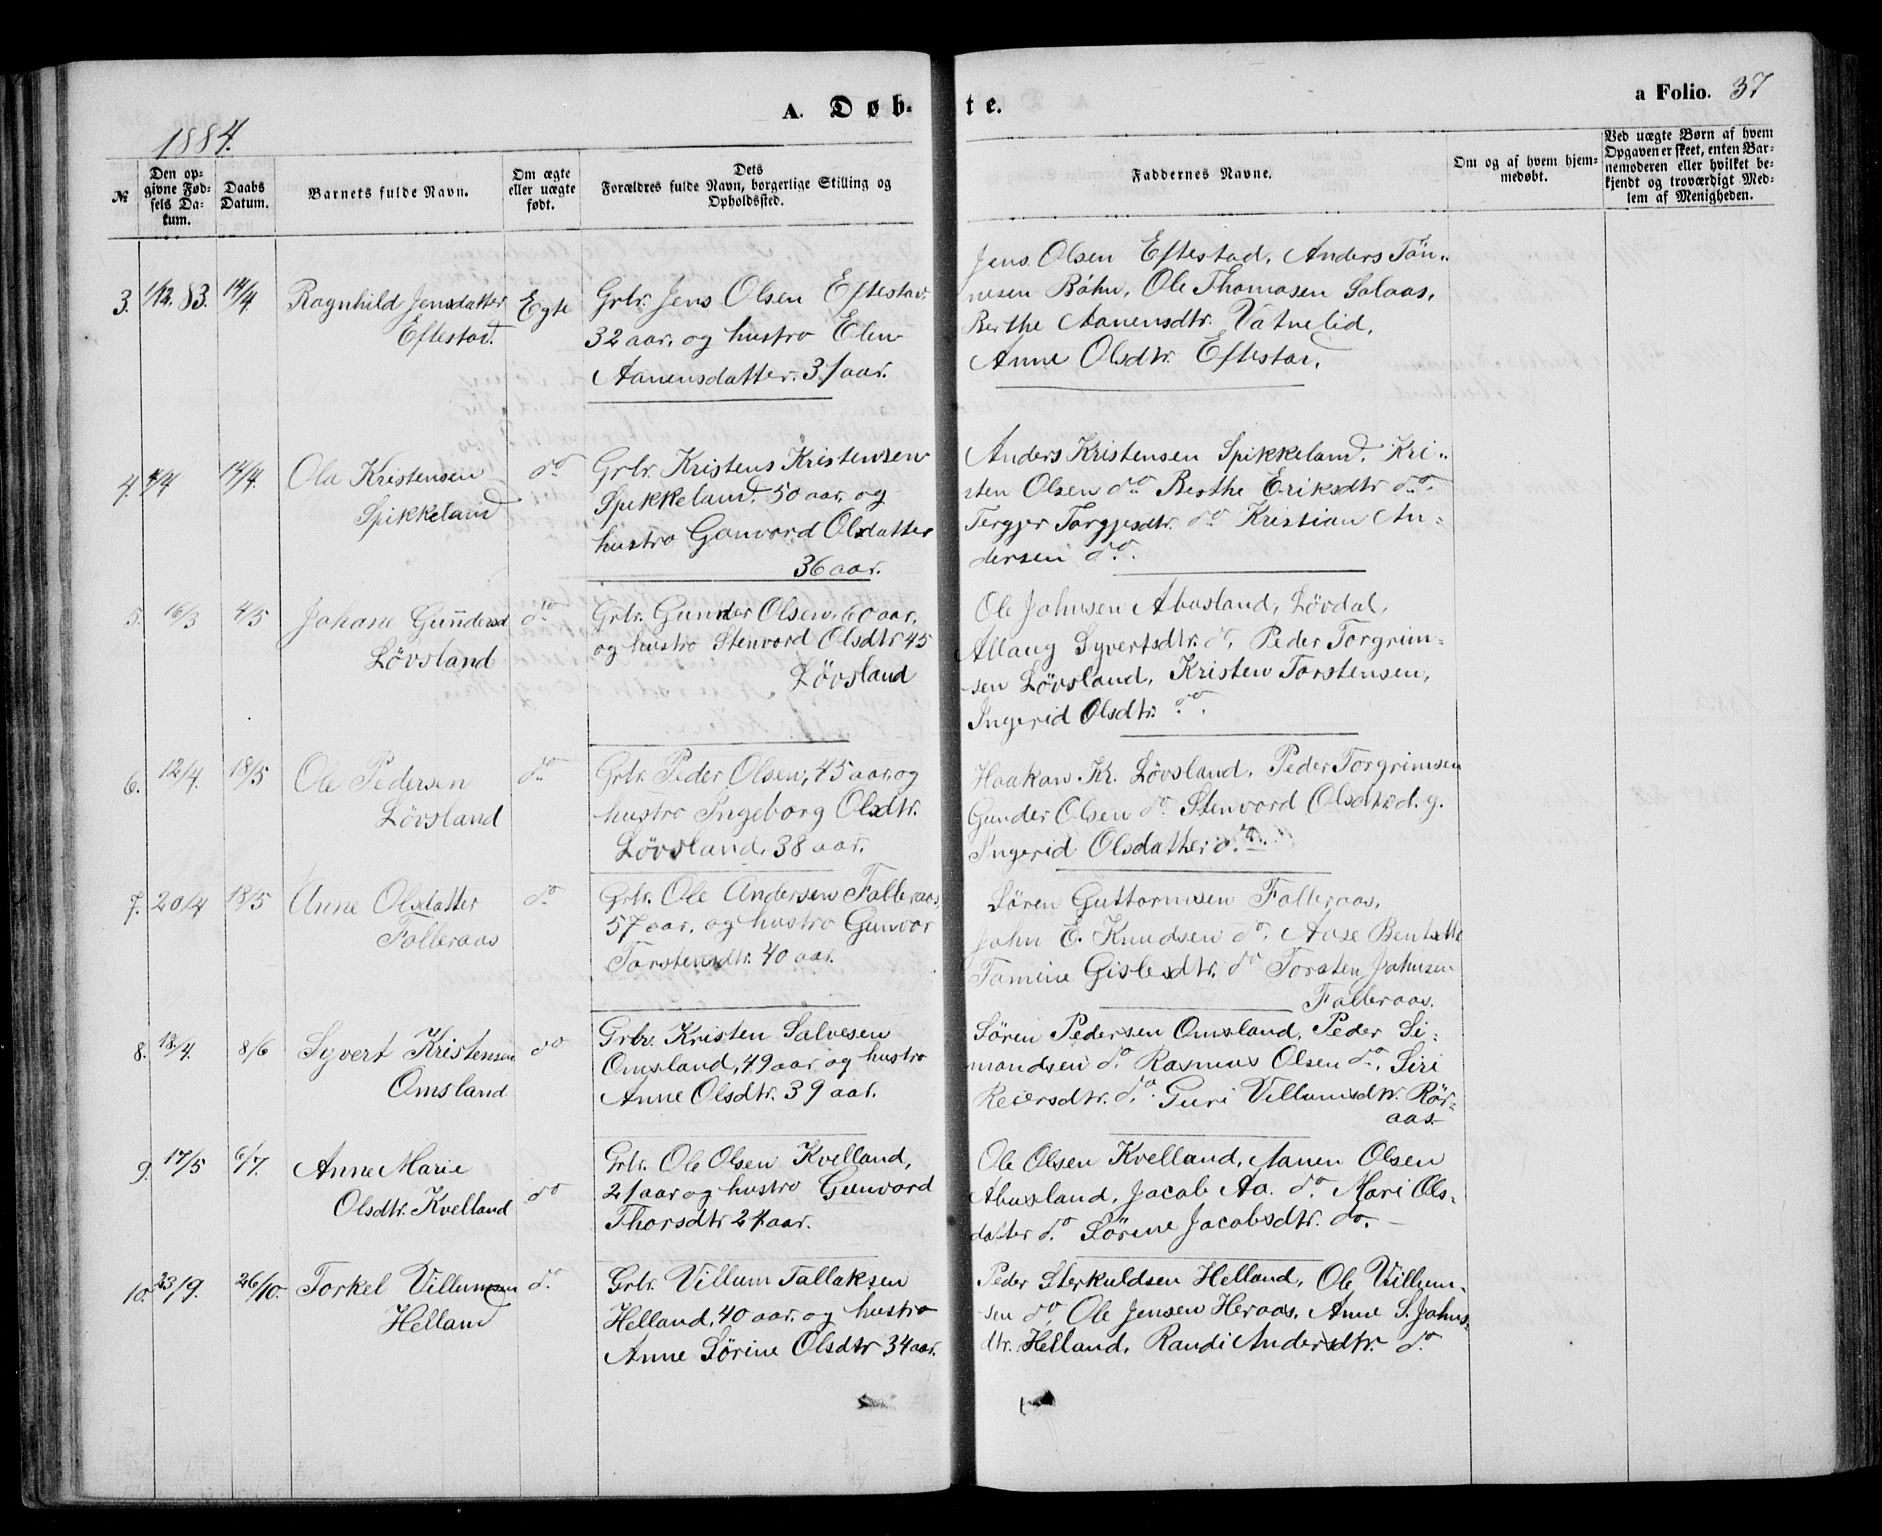 A. Døb-
te.
a Folio. 37
1884.
№
Den op-
givne Fød-
sels Da-
tum.
Daabs
Datum.
Barnets fulde Navn.
Om ægte
eller uægte
født.
Dets
Forældres fulde Navn, borgerlige Stilling og
Opholdssted.
Faddernes Navne.
Om og af hvem hjem-
medøbt.
Ved uægte Børn af hvem
Opgaven er skeet, enten Bar-
nemoderen eller hvilket be-
kjendt og troværdigt Med-
lem af Menigheden.
3. 1/12. 83. 14/4 Ragnhild Jensdatter
Eftestad.
Egte
Grbr. Jens Olsen Eftestad.
32 aar, og hustro Elen
Aanensdatter. 31 aar.
Jens Olsen Eftestad, Anders Tön-
nesen Böhn, Ole Thomasen Salaas,
Berthe Aanensdtr. Vatnelid,
Anne Olsdtr. Eftestad.
4. 4/4 14/4. Ola Kristensen
Spikkeland
do
Grbr. Kristens Kristensen
Spikkeland. 50 aar, og
hustro Gonvord Olsdatter
36 aar.
Anders Kristensen Spikkeland, Kri-
sten Olsen do Berthe Eriksdtr do.
Tergjer Torgjesdtr. do Kristian An-
dersen do.
5. 16/3 4/5 Johane Gundersd
Lövsland
do
Grbr. Gunder Olsen, 60 aar,
og hustro Stenvord Olsdtr 45
Lövsland
Ole Johnsen Abusland, Lövdal,
Allaug Syvertsdtr. do, Peder Torgrim-
sen Lövsland, Kristen Torstensen,
Ingerid Olsdtr. do.
6. 12/4. 18/5 Ole Pedersen
Lövsland
do
Grbr. Peder Olsen, 45 aar og
hustro Ingeborg Olsdtr.
Lövsland, 38 aar.
Haakon Kr. Lövsland, Peder Torgrimsen
Gunder Olsen do Stenvord Olsdtr d. g.
Ingerid Olsdatter do.
7. 20/4 18/5 Anne Olsdatter
Falleraas
do
Grbr. Ole Andersen Falleraas,
57 aar, og hustro Gunvor
Torstensdtr. 40 aar.
Sören Guttormsen Falleraas,
John E. Knudsen do, Aase Bentsdtr
Tamine Gislesdtr. do Torsten Johnsen
Falleraas.
8. 18/4. 8/6 Syvert Kristensen
Omsland
do
Grbr. Kristen Salvesen
Omsland, 49 aar og hustro
Anne Olsdtr. 39 aar.
Sören Pedersen Omsland, Peder Si-
mondsen do Rasmus Olsen do, Siri
Reiersdtr. do. Guri Villumsdtr. Rör-
aas.
9. 17/5 6/7. Anne Marie
Olsdtr. Kvelland
do
Grbr. Ole Olsen Kvelland,
21 aar og hustro Gunvord
Thorsdtr 24 aar.
Ole Olsen Kvelland, Aanen Olsen
Abusland, Jacob Aa. do Mari Ols-
datter do Sörine Jacobsdtr. do.
10. 23/9. 26/10. Torkel Villumsen
Helland
do
Grbr. Villum Tallaksen
Helland, 40 aar, og hustro
Anne Sörine Olsdtr 34 aar.
Peder Sterkuldsen Helland, Ole Villum-
sen do, Ole Jensen Heraas, Anne S. Johns-
dtr. Helland, Randi Andersdtr. do